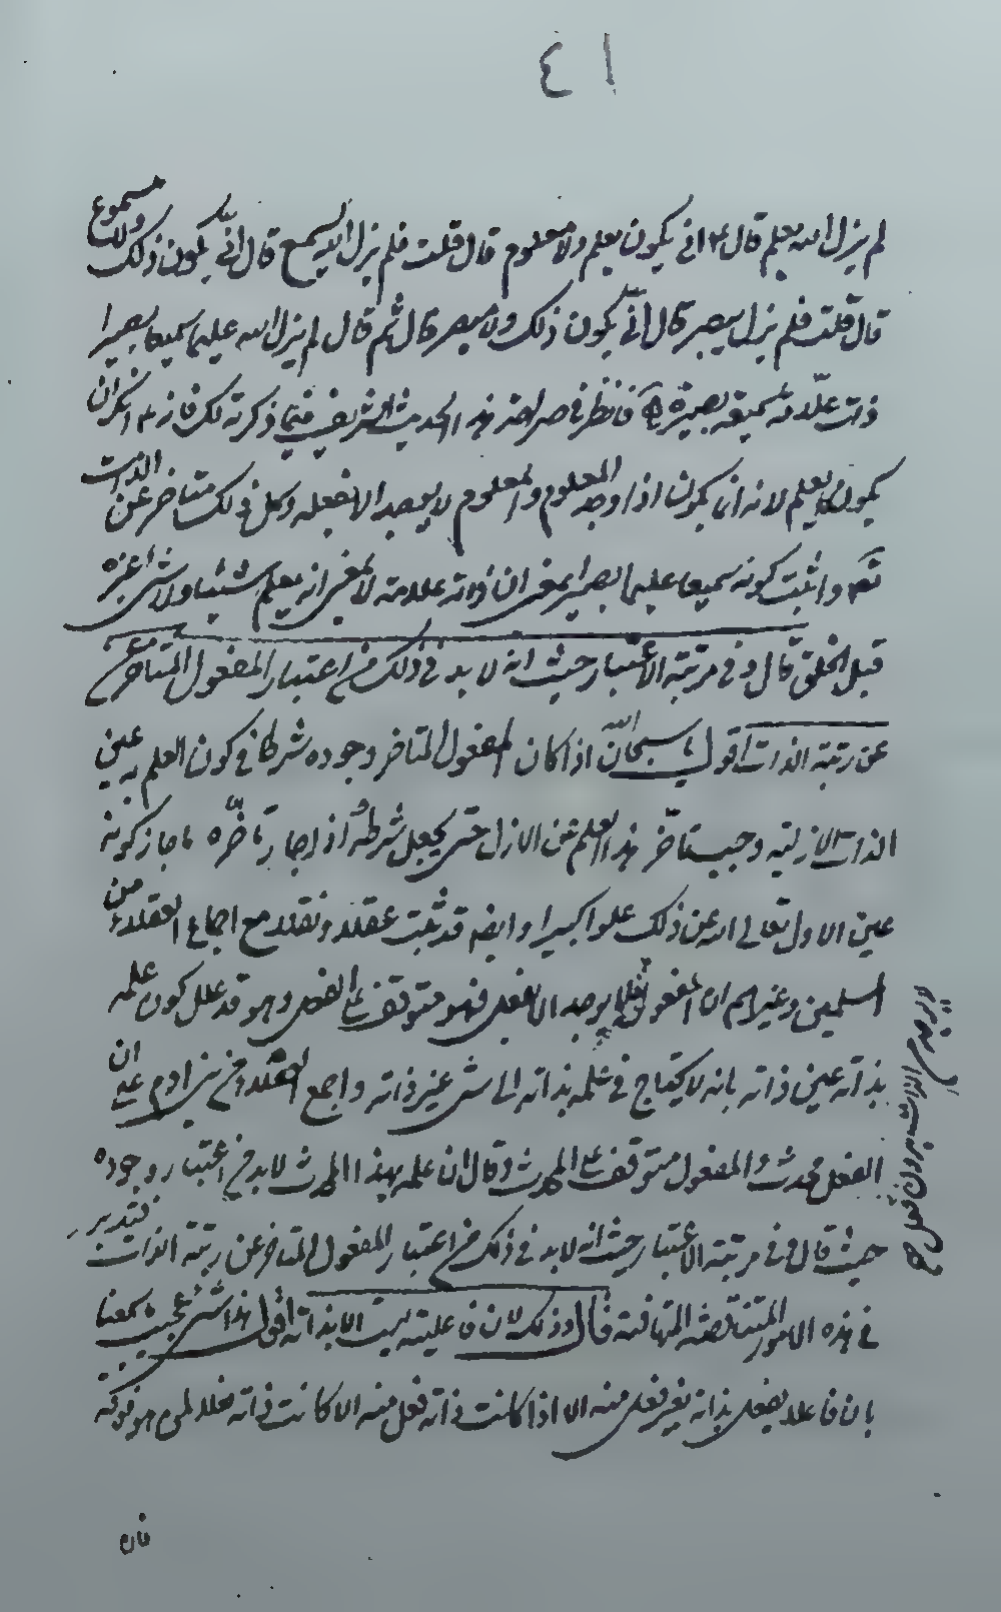 ٤١
لم يزل الله يعلم قال ع انى يكون يعلم ولا معلوم قال قلت فلم يزل الله يسمع قال انّى يكون ذلك ولا مسموع
قال قلت فلم يزل يبصر قال انّى يكون ذلك ولا مبصر قال ثم قال لم يزل الله عليما سميعا بصيرا
ذات علّامة سميعة بصيرة فانظر في صراحة هذا الحديث الشريف فيما ذكرته لك فانه ع انكر ان
يكون يعلم لانه انما يكون اذا وجد المعلوم والمعلوم لا يوجد الا بفعله وكل ذلك متاخر عن الذات
ثم واثبت كونه سميعا عليما بصيرا بمعنى ان ذاته علامة لا بمعنى انه يعلم شيئا ولا شئ غيره
قبل الخلق قال وفى مرتبة الاعتبار حيث انه لا بد في ذلك من اعتبار المفعول المتاخر
عن رتبة الذات اقول يا سبحان الله اذا كان المفعول المتاخر وجوده شرطا في كون العلم به عين
الذات الازلية وجب تاخر هذا العلم عن الازل حتى يحصل شرطه اذ لو جاز تاخّره ما جاز كونه
عين الاول تعالى الله عن ذلك علوا كبيرا وايضا قد ثبت عقلا ونقلا مع اجماع العقلاء من
المسلمين وغيرهم ان المفعول لا يوجد الا بفعل فهو متوقف على الفعل وهو قد علل كون علمه
بذاته عين ذاته بانه لا يحتاج في علمه بذاته الى شئ غير ذاته واجمع العقلاء من بنى ادم على ان
الفعل محدث والمفعول متوقف على المحدث وقال ان علمه بهذا المحدث لا بد من اعتبار وجوده
حيث قال وفى مرتبة الاعتبار حيث انه لا بد في ذلك من اعتبار المفعول المتاخر عن رتبة الذات فتدبر
في هذه الامور المتناقضة المتهافتة قال وذلك لان فاعليته ليست الا بذاته اقول هذا شئ عجيب ما سمعنا
بان فاعلا يفعل بذاته بغير فعل منه الا اذا كانت ذاته فعل منه الا كانت ذاته فعلا لمن هو فوقه
لا يوجد من الذات بدون فعل صح
فان